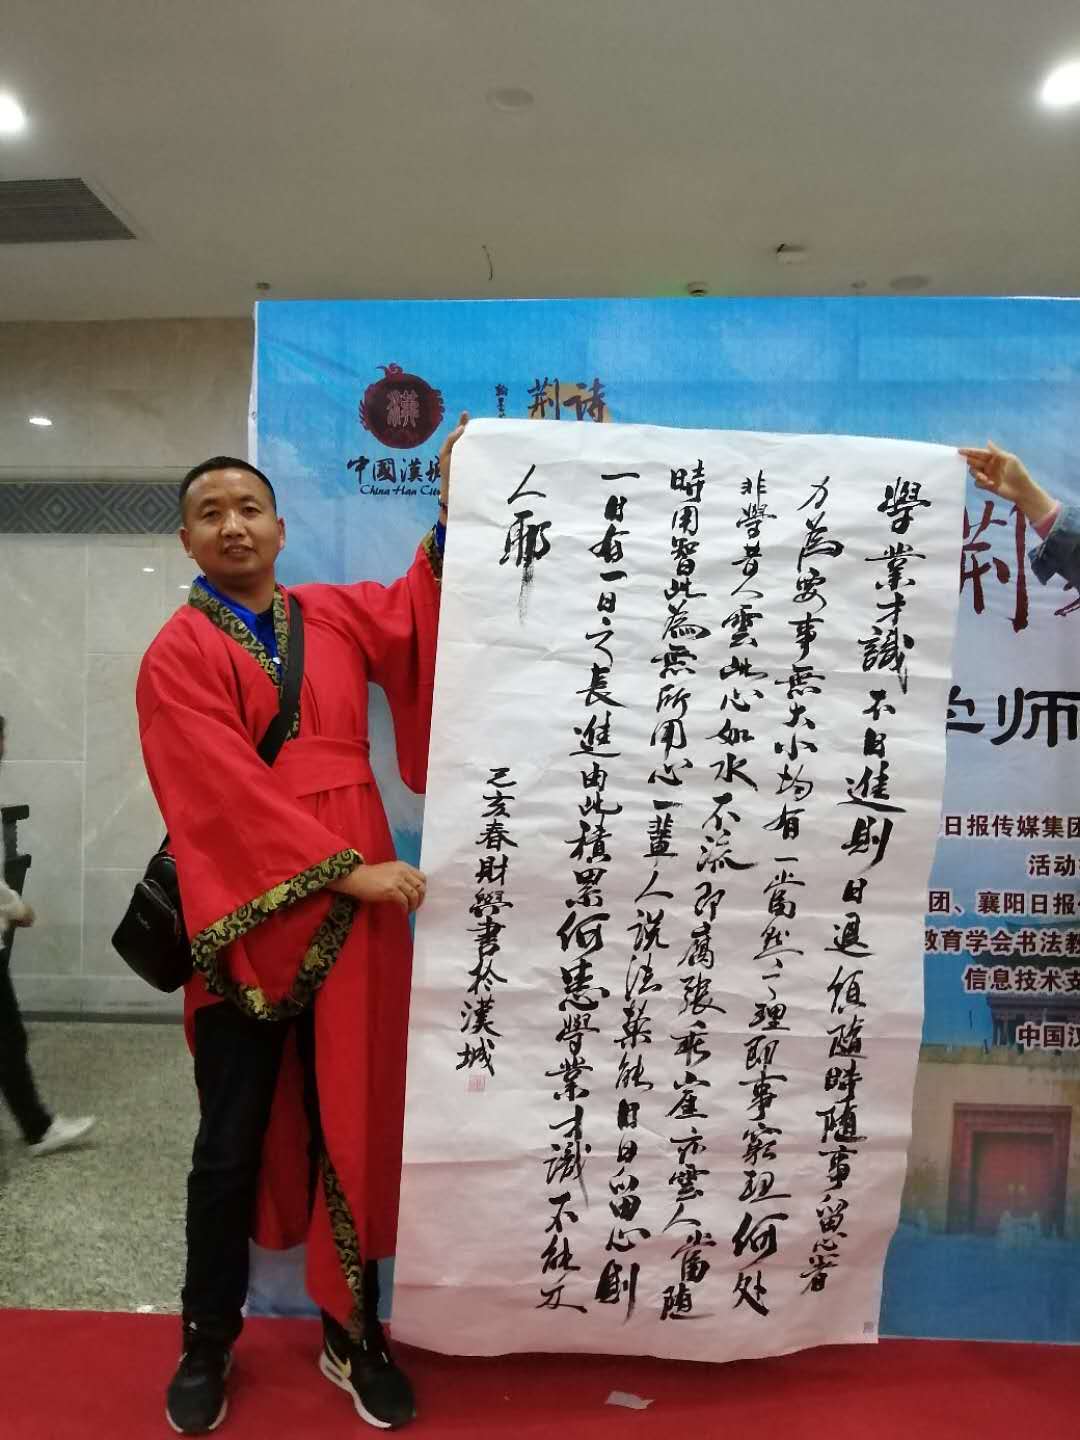 中國漢城
China Han City
荆诗
荆
学师
學業才識不日進則日退須隨時随事留心著
力為要事無大小均有一當然之理即事窮理何处
非學昔人雲此心如水不流即腐張乖崖亦雲人當随
時用智此為無所用心一輩人説法果能日日留心則
一日有一日之長進由此積累何患學業才識不能及
人耶
己亥春財興書於漢城
日报传媒集团
活动
团、襄阳日报
教育学会书法教
信息技术支
中国汉